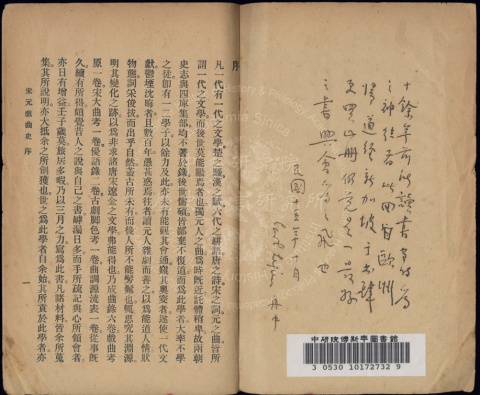 十餘年前所讀書
歸道經新加坡于書肆
見此冊仍覺是一最好
之書興會為之飛也
民國十五年十月
舟中
中研院傅斯年圖書館
3 0530 10172732 9
序
凡一代有一代之文學。楚之騷、漢之賦、六代之駢語、唐之詩、宋之詞、元之曲、皆所
謂一代之文學。而後世莫能繼焉者也。獨元人之曲、為時旣近、託體稍卑、故兩朝
史志與四庫集部、均不著於錄。後世儒碩、皆鄙棄不復道。而為此學者、大率不學
之徒。卽有一二學子、以餘力及此、亦未有能觀其會通、窺其奧窔者。遂使一代文
獻、鬱堙沈晦者且數百年。愚甚惑焉。往者讀元人雜劇而善之。以為能道人情、狀
物態、詞采俊拔、而出乎自然。蓋古所未有、而後人所不能髣髴也。輒思究其淵源、
明其變化之跡。以為非求諸唐宋遼金之文學、弗能得也。乃成曲錄六卷、戲曲考
原一卷、宋大曲考一卷、優語錄二卷、古劇脚色考一卷、曲調源流表一卷。從事旣
久、續有所得、頗覺昔人之說、與自己之書、罅漏日多。而手所疏記、與心所領會者、
亦日有增益。壬子歲莫、旅居多暇、乃以三月之力、寫為此書。凡諸材料、皆余所蒐
集。其所說明、亦大抵余之所創獲也。世之為此學者自余始。其所貢於此學者、亦
宋元戲曲史 序
一